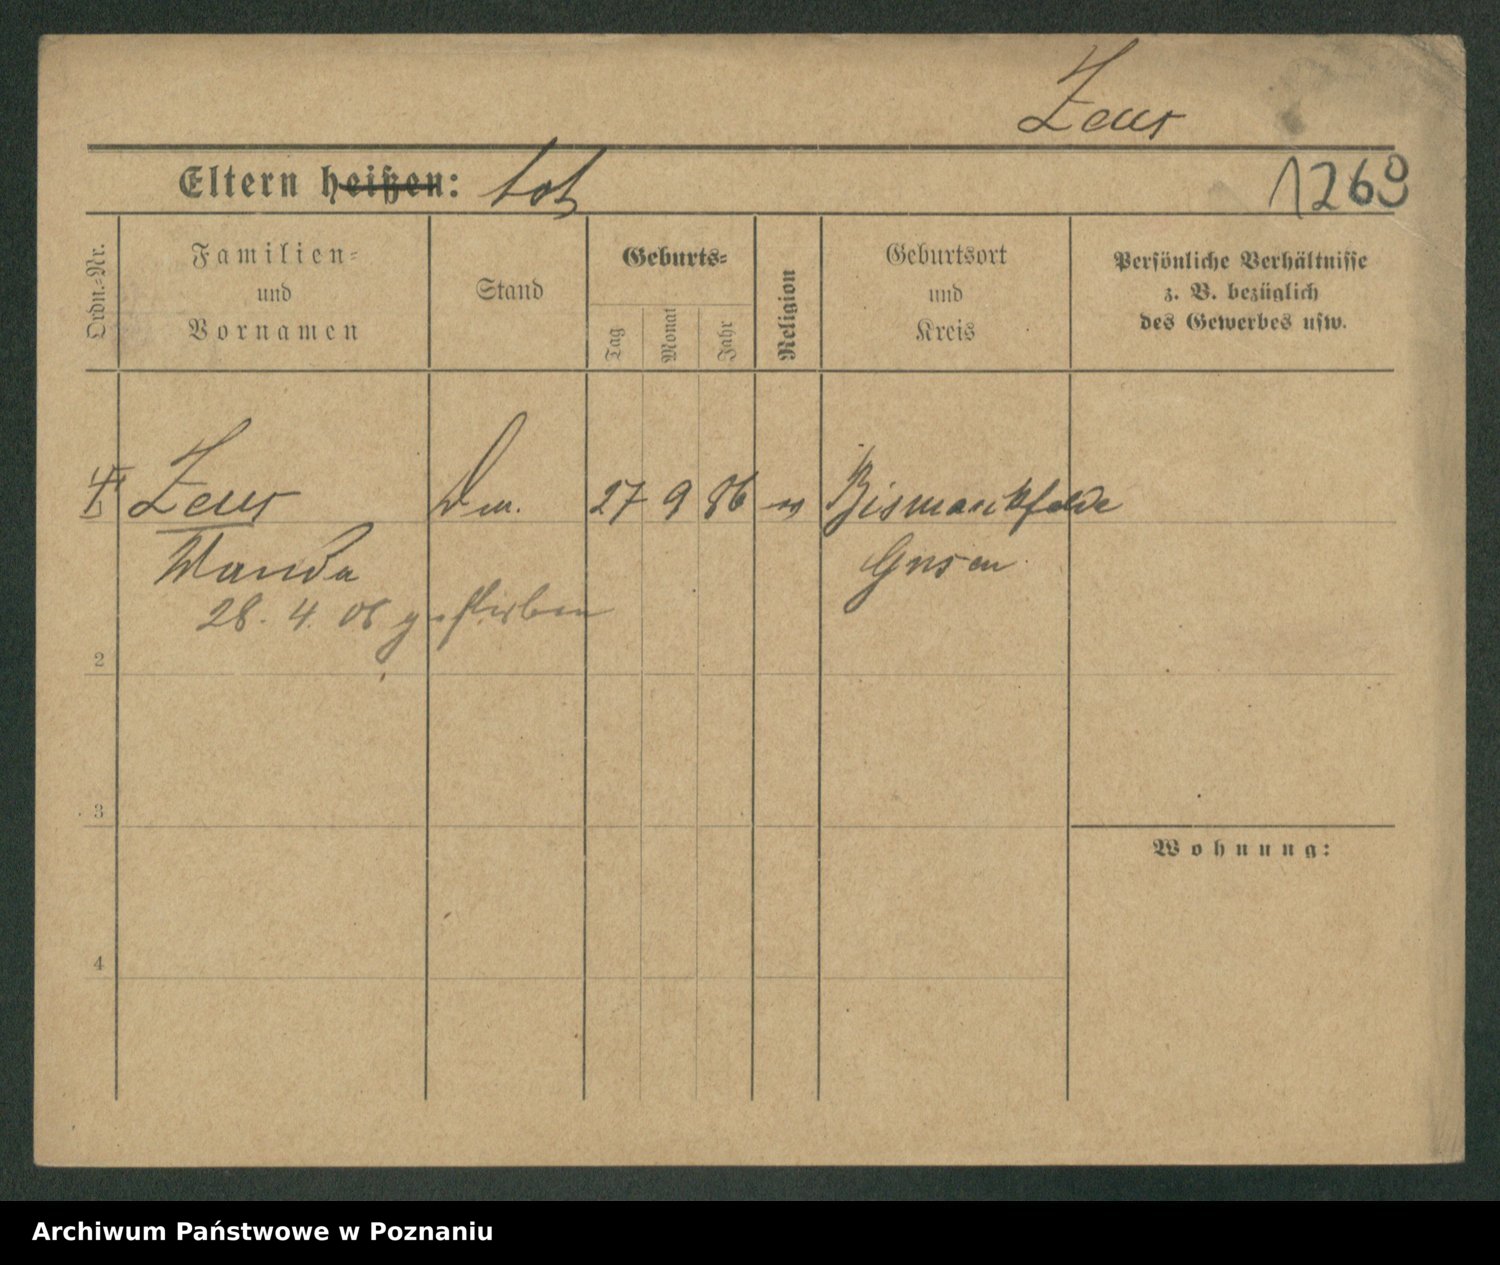 Zeus
Eltern heißen: tot
1269
Ordn.-Nr.
Familien-
und
Vornamen
Stand
Geburts-
Tag
Monat
Jahr
Religion
Geburtsort
und
Kreis
Persönliche Verhältnisse
z. B. bezüglich
des Gewerbes usw.
Zeus 27 9 86 Bismarckfelde
Wanda Gnesen
28. 4. 06 gestorben
2
3
Wohnung:
4
Archiwum Państwowe w Poznaniu